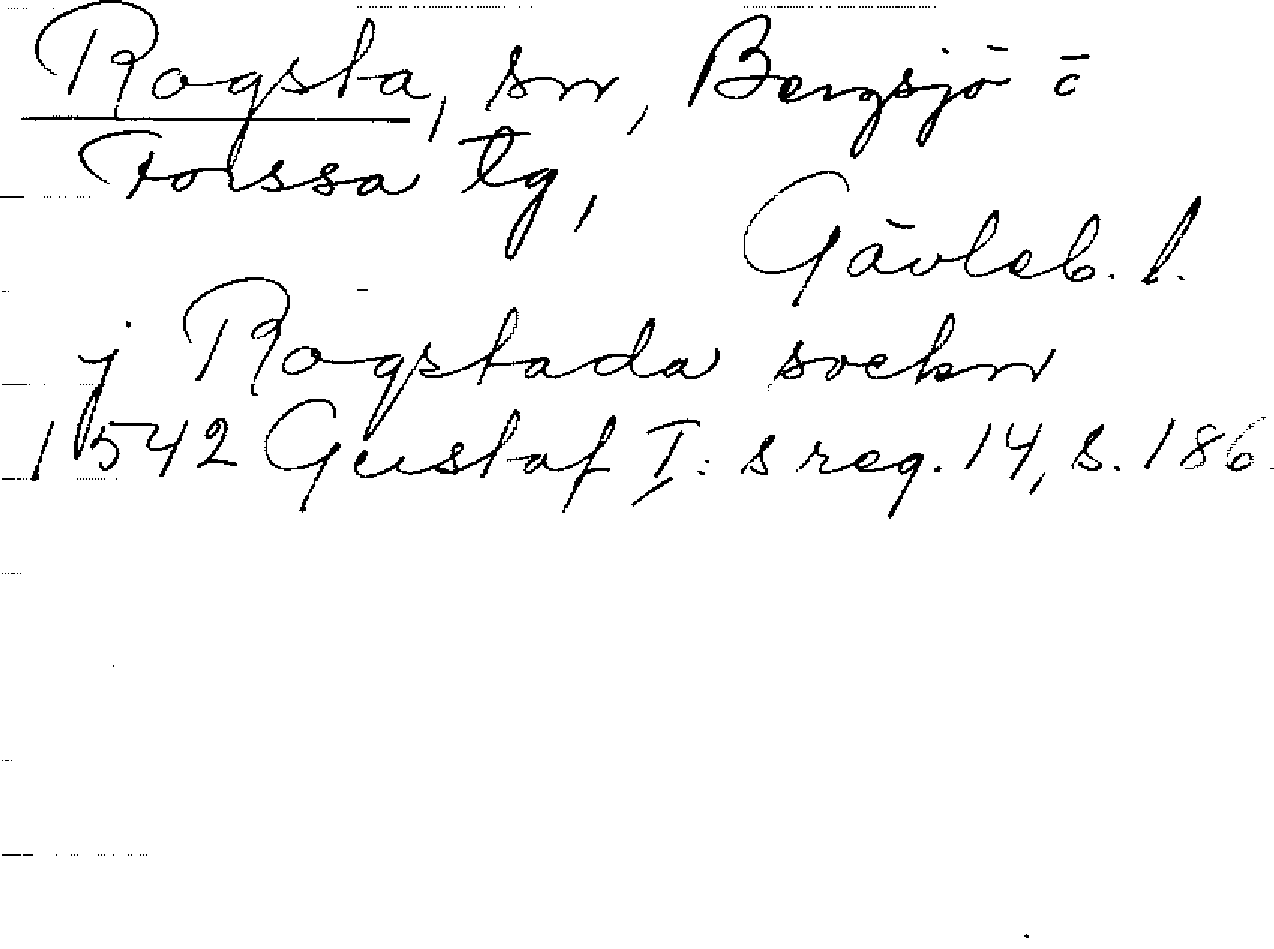 Rogsta, sn, Bergsjö o
Forssa tg,
Gävleb. l.
j Rogstada sockn
1542 Gustaf I:s reg. 14, s. 186.